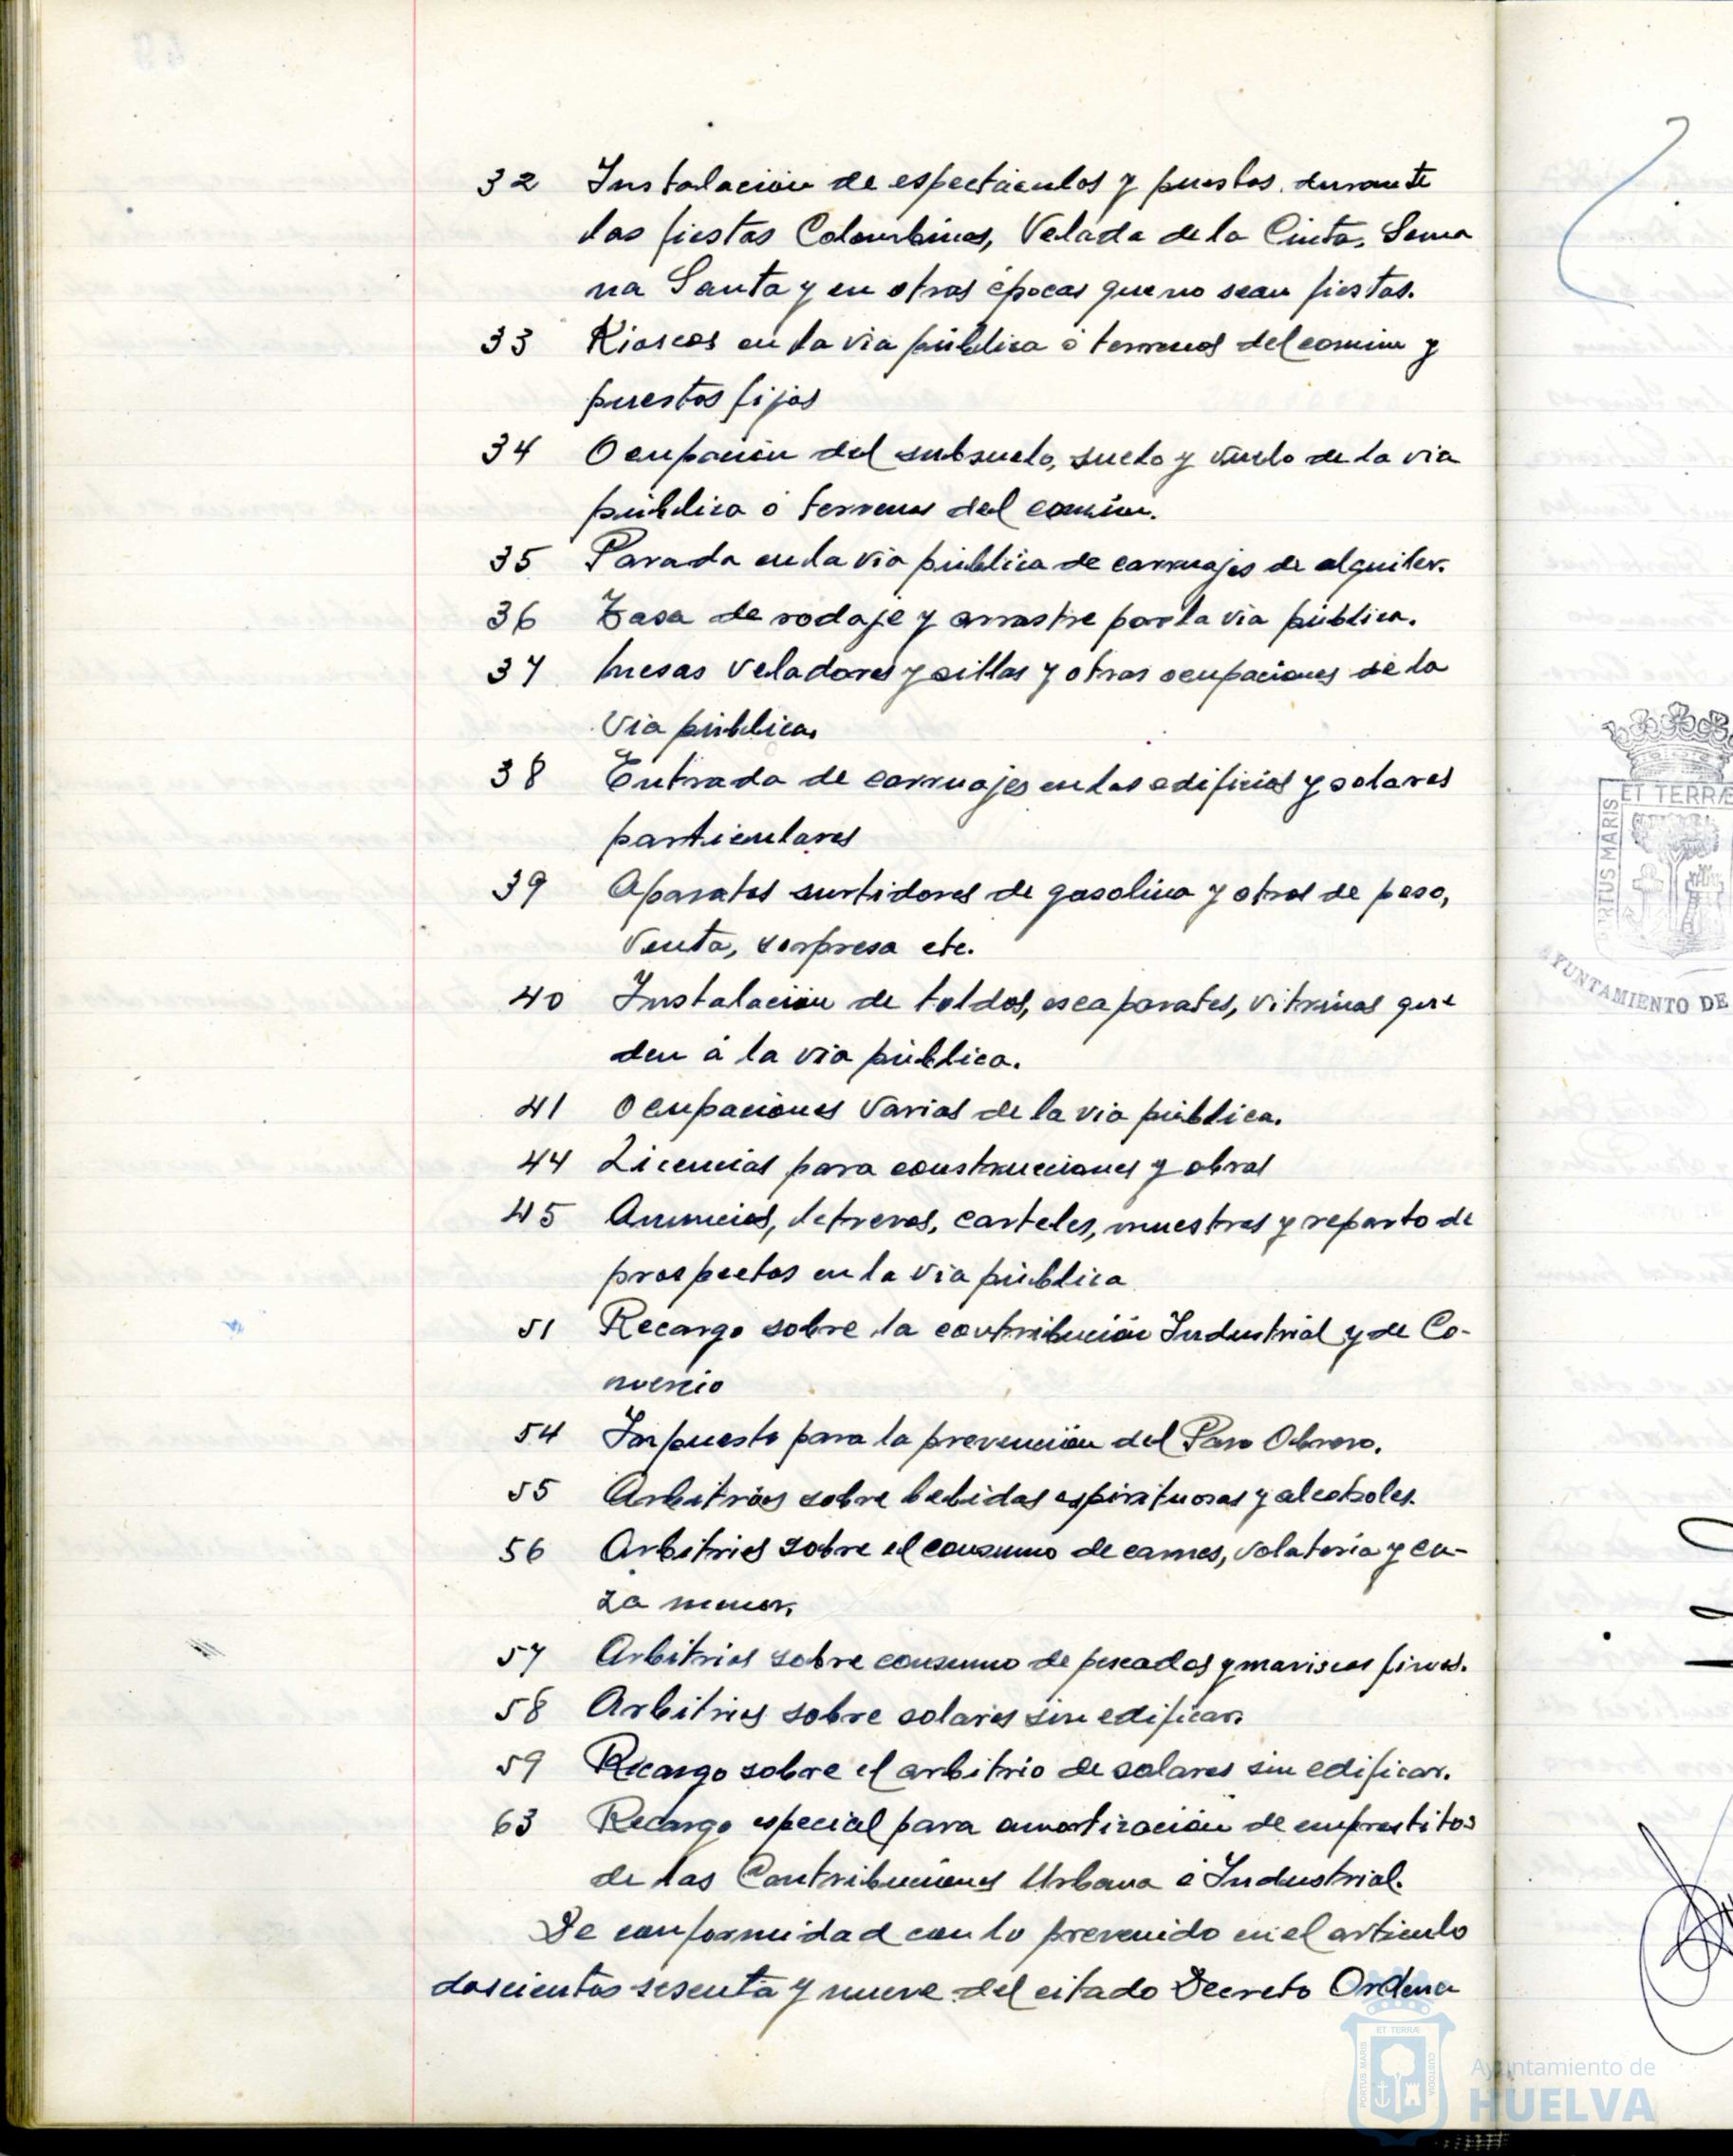 32 Instalación de espectáculos y puestos durante
las fiestas Colombinas, Velada de la Cinta, Sema
na Santa y en otras épocas que no sean fiestas.
33 Kioscos en la via pública ó terrenos del comun y
puestos fijos
34 Ocupación del subsuelo, suelo y vuelo de la via
pública ó terrenos del común.
35 Parada en la via pública de carruajes de alquiler.
36 Tasa de rodaje y arrastre por la via pública.
37 Mesas veladores y sillas y otras ocupaciones de la
via pública.
38 Entrada de carruajes en los edificios y solares
particulares
39 Aparatos surtidores de gasolina y otros de peso,
venta, sorpresa etc.
40 Instalación de toldos, escaparates, vitrinas que
den á la via pública.
41 Ocupaciones varias de la via pública.
44 Licencias para construcciones y obras
45 Anuncios, letreros, carteles, muestras y reparto de
prospectos en la via pública
51 Recargo sobre la contribución Industrial y de Co-
mercio
54 Impuesto para la prevención del Paro Obrero.
55 Arbitrios sobre bebidas espirituosas y alcoholes.
56 Arbitrios sobre el consumo de carnes, volateria y ca-
za menor.
57 Arbitrios sobre consumo de pescados y mariscos finos.
58 Arbitrios sobre solares sin edificar.
59 Recargo sobre el arbitrio de solares sin edificar.
63 Recargo especial para amortización de emprestitos
de las Contribuciones Urbana é Industrial.
De conformidad con lo prevenido en el articulo
doscientos sesenta y nueve del citado Decreto Ordena
ET TERRÆ
PORTUS MARIS
AYUNTAMIENTO DE
ET TERRÆ
PORTUS MARIS
CUSTODIA
Ayuntamiento de
HUELVA